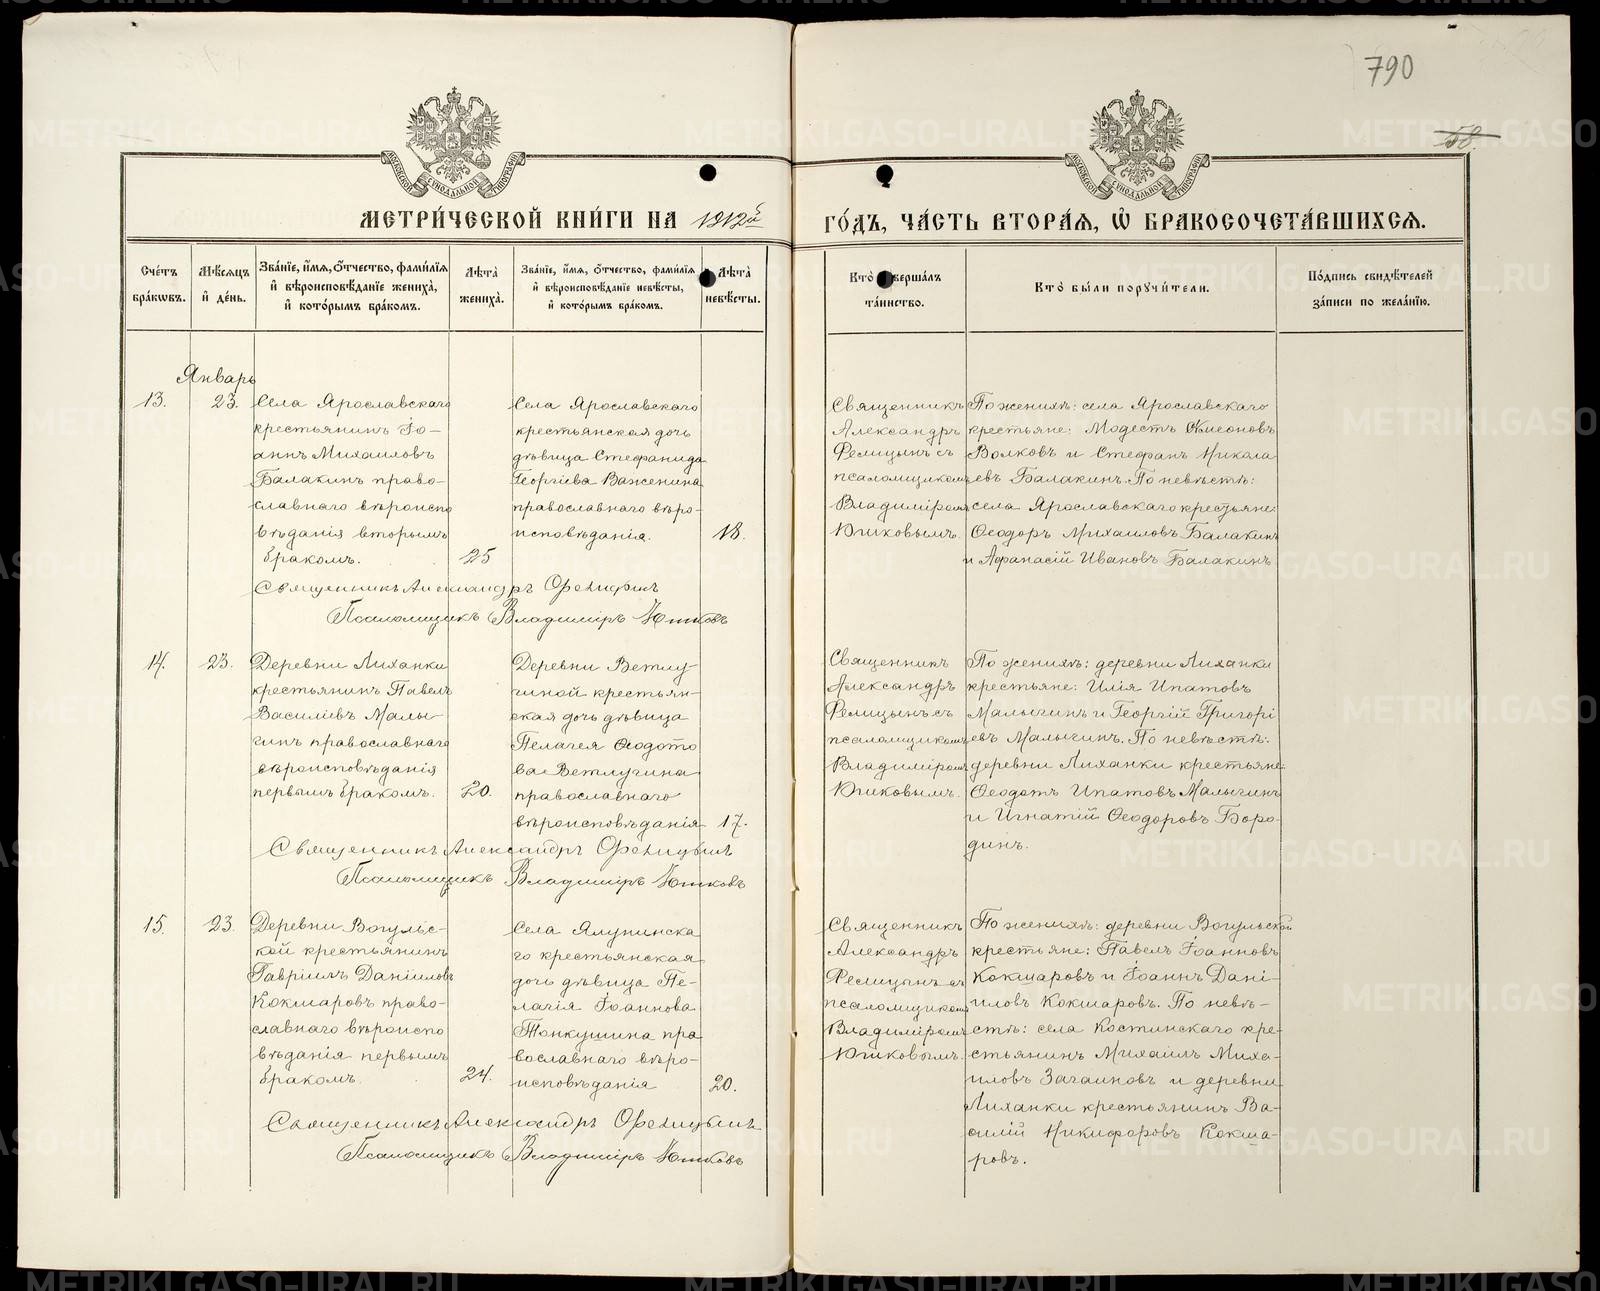 790
58.
МОСКОВСКОЙ СѴНОДАЛЬНОЙ ТИПОГРАФІИ
МОСКОВСКОЙ СѴНОДАЛЬНОЙ ТИПОГРАФІИ
МЕТРИ́ЧЕСКОЙ КНИ́ГИ НА 1912й
ГО́ДЪ, ЧА́СТЬ ВТОРА́Я, Ѡ БРАКОСОЧЕТА́ВШИХСЯ.
Сче́тъ бра́кѡвъ.
Мѣ́сяцъ и҆ де́нь.
Зва́нїе, и҆́мя, ѻ҆́тчество, фами́лїя
и҆ вѣроисповѣ́данїе жениха̀,
и҆ кото́рымъ бра́комъ.
Лѣ́та жениха̀.
Зва́нїе, и҆́мя, ѻ҆́тчество, фами́лїя
и҆ вѣроисповѣ́данїе невѣ́сты,
и҆ кото́рымъ бра́комъ.
Лѣ́та невѣ́сты.
Кто̀ соверша́лъ
та́инство.
Кто̀ бы́ли порꙋчи́тели.
По́дпись свидѣ́телей
за́писи по жела́нїю.
Январь
13.
23.
Села Ярославскаго
крестьянинъ Іо-
аннъ Михаиловъ
Балакинъ право-
славнаго вѣроиспо
вѣданія вторымъ
бракомъ.
25
Села Ярославскаго
крестьянская дочь
дѣвица Стефанида
Георгіева Важенина
православнаго вѣро-
исповѣданія.
18.
Священникъ
Александръ
Фелицынъ съ
псаломщикомъ
Владиміромъ
Юшковымъ.
По женихѣ: села Ярославскаго
крестьяне: Модестъ Симеоновъ
Волковъ и Стефанъ Никола
евъ Балакинъ. По невѣстѣ:
села Ярославскаго крестьяне:
Ѳеодоръ Михаиловъ Балакинъ
и Афанасій Ивановъ Балакинъ
Священникъ Александръ Фелицынъ
Псаломщикъ Владиміръ Юшковъ
14.
23.
Деревни Лиханки
крестьянинъ Павелъ
Василіевъ Малы-
гинъ православнаго
вѣроисповѣданія
первымъ бракомъ.
20.
Деревни Ветлу-
гиной крестьян-
ская дочь дѣвица
Пелагея Ѳеодото
ва Ветлугина
православнаго
вѣроисповѣданія
17.
Священникъ
Александръ
Фелицынъ съ
псаломщикомъ
Владиміромъ
Юшковымъ.
По женихѣ: деревни Лиханки
крестьяне: Илія Ипатовъ
Малыгинъ и Георгій Григорі
евъ Малыгинъ. По невѣстѣ:
деревни Лиханки крестьяне:
Ѳеодотъ Ипатовъ Малыгинъ
и Игнатій Ѳеодоровъ Боро-
динъ.
Священникъ Александръ Фелицынъ
Псаломщикъ Владиміръ Юшковъ
15.
23.
Деревни Вогульс-
кой крестьянинъ
Гавріилъ Даніиловъ
Кокшаровъ право-
славнаго вѣроиспо
вѣданія первымъ
бракомъ.
24.
Села Ялунинска
го крестьянская
дочь дѣвица Пе-
лагія Іоаннова
Тонкушина пра
вославнаго вѣро-
исповѣданія
20.
Священникъ
Александръ
Фелицынъ съ
псаломщикомъ
Владиміромъ
Юшковымъ.
По женихѣ: деревни Вогульской
крестьяне: Павелъ Іоанновъ
Кокшаровъ и Іоаннъ Дані-
иловъ Кокшаровъ. По невѣ-
стѣ: села Костинскаго кре-
стьянинъ Михаилъ Миха-
иловъ Загаиновъ и деревни
Лиханки крестьянинъ Ва-
силій Никифоровъ Кокша-
ровъ.
Священникъ Александръ Фелицынъ
Псаломщикъ Владиміръ Юшковъ
METRIKI.GASO-URAL.RU